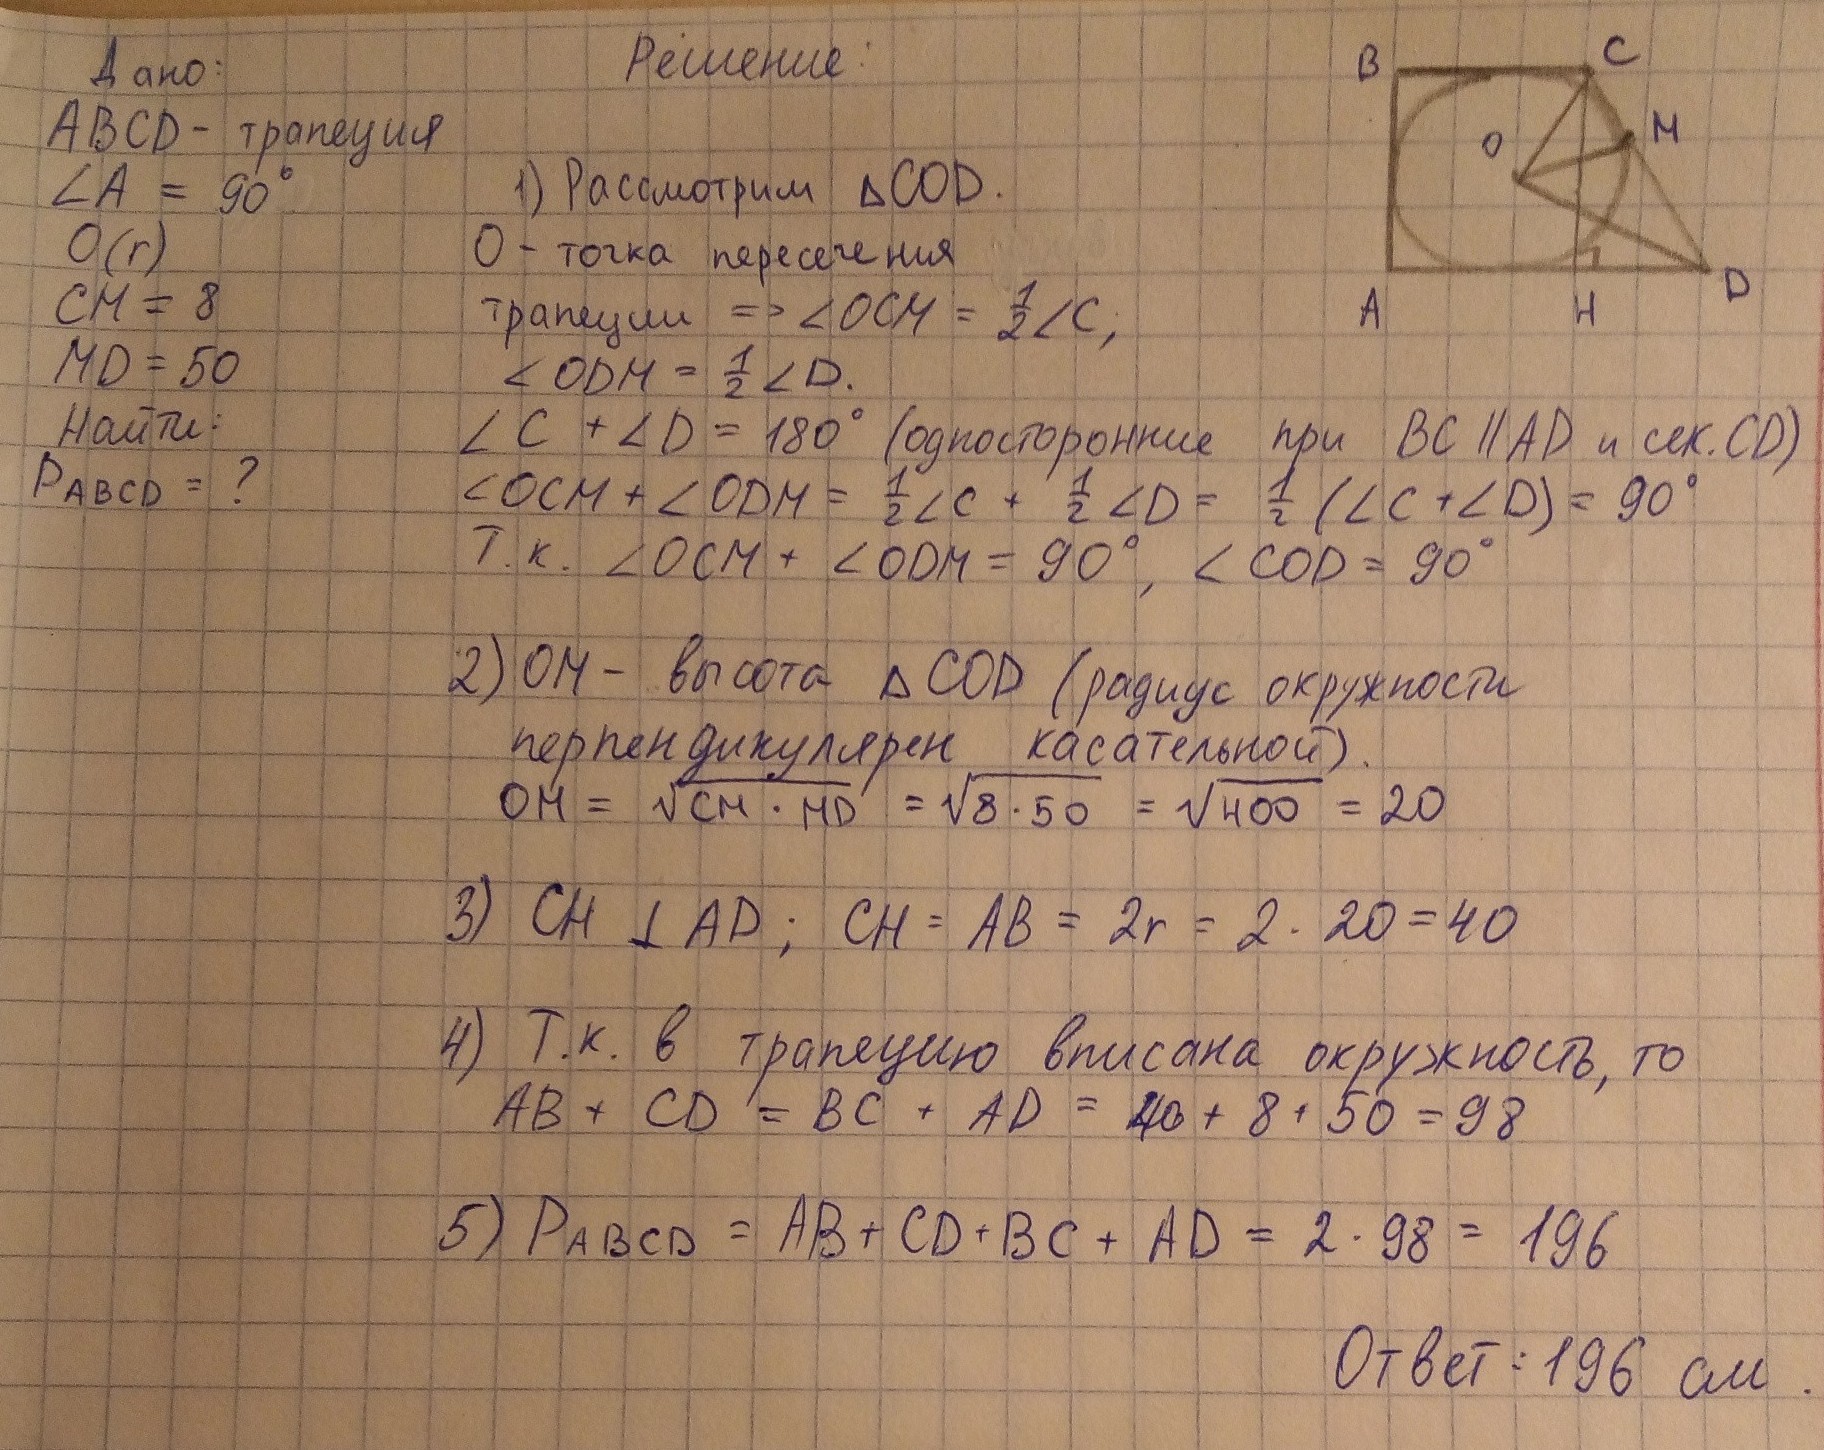 Дано:
ABCD - трапеция
∠A = 90°
O(r)
CM = 8
MD = 50
Найти:
PABCD = ?
Решение:
1) Рассмотрим ΔCOD.
O - точка пересечения
трапеции => ∠OCM = 1/2 ∠C;
∠ODM = 1/2 ∠D.
∠C + ∠D = 180° (односторонние при BC || AD и сек. CD)
∠OCM + ∠ODM = 1/2 ∠C + 1/2 ∠D = 1/2 (∠C + ∠D) = 90°
Т.к. ∠OCM + ∠ODM = 90°, ∠COD = 90°
2) OM - высота ΔCOD (радиус окружности
перпендикулярен касательной).
OM = √CM · MD = √8 · 50 = √400 = 20
3) CH ⊥ AD; CH = AB = 2r = 2 · 20 = 40
4) Т.к. в трапецию вписана окружность, то
AB + CD = BC + AD = 40 + 8 + 50 = 98
5) PABCD = AB + CD + BC + AD = 2 · 98 = 196
Ответ: 196 см.
B
C
O
M
A
H
D